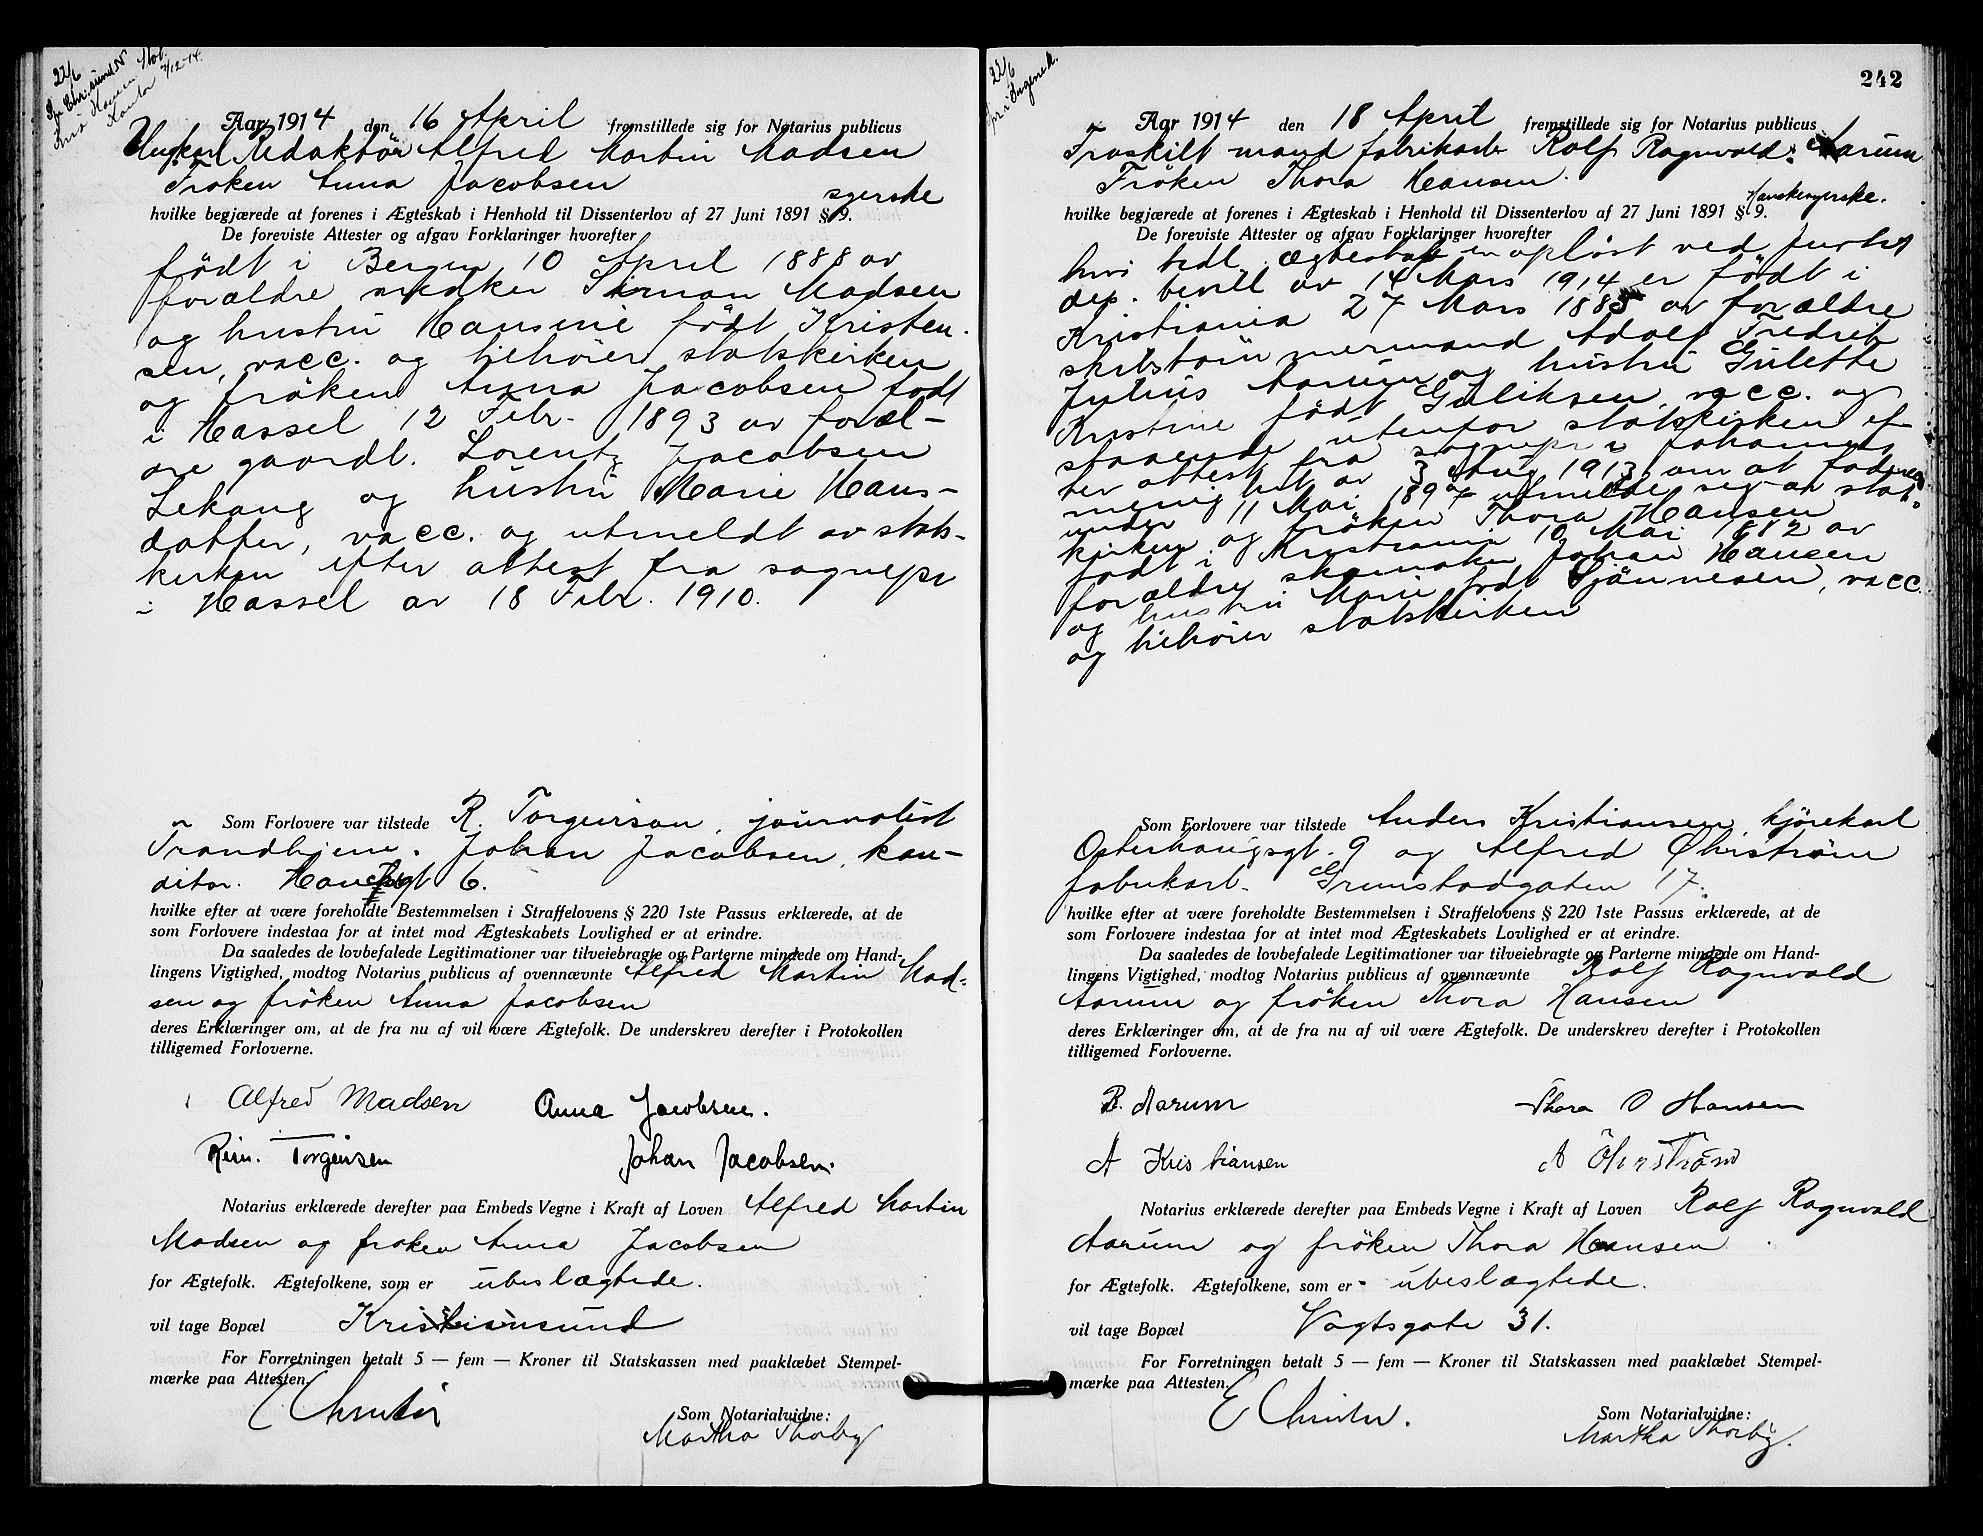 22/6
Aar 1914 den 16 April fremstillede sig for Notarius publicus
Ungkarl Redaktör Alfred Martin Madsen
Frøken Anna Jacobsen
syerske
hvilke begjærede at forenes i Ægteskab i Henhold til Dissenterlov af 27 Juni 1891 § 9.
De foreviste Attester og afgav Forklaringer hvorefter
födt i Bergen 10 April 1888 av
forældre snedker Madsen
og hustru Hansine födt Kristen-
sen, vacc. og tilhörer statskirken
og fröken Anna Jacobsen født
i Hassel 12 Febr. 1893 av foræl-
dre gaardbr. Lorentz Jacobsen
Lekang og hustru Marie Hans-
datter, vacc. og utmeldt av stats-
kirken efter attest fra sognepr
i Hassel av 18 Febr. 1910.
Som Forlovere var tilstede R. Torgeirson, journalist
Trondhjem. Johan Jacobsen, kon-
ditor. 6.
hvilke efter at være foreholdte Bestemmelsen i Straffelovens § 220 1ste Passus erklærede, at de
som Forlovere indestaa for at intet mod Ægteskabets Lovlighed er at erindre.
Da saaledes de lovbefalede Legitimationer var tilveiebragte og Parterne mindede om Hand-
lingens Vigtighed, modtog Notarius publicus af ovennævnte Alfred Martin Mad-
sen og fröken Anna Jacobsen
deres Erklæringer om, at de fra nu af vil være Ægtefolk. De underskrev derefter i Protokollen
tilligemed Forloverne.
Alfred Madsen Anna Jacobsen.
Rein. Torgeirsen Johan Jacobsen.
Notarius erklærede derefter paa Embeds Vegne i Kraft af Loven Alfred Martin
Madsen og frøken Anna Jacobsen
for Ægtefolk. Ægtefolkene, som er ubeslægtede.
vil tage Bopæl Kristiansund
For Forretningen betalt 5 — fem — Kroner til Statskassen med paaklæbet Stempel-
mærke paa Attesten.
Som Notarialvidne:
Martha Thorby
242
22/6
Aar 1914 den 18 April fremstillede sig for Notarius publicus
Fraskilt mand fabrikarb Rolf Ragnvald Aarum
Fröken Thora Hansen.
Hanskesyerske.
hvilke begjærede at forenes i Ægteskab i Henhold til Dissenterlov af 27 Juni 1891 § 9.
De foreviste Attester og afgav Forklaringer hvorefter
hvis tidl. ægteskab er oplöst ved Justis
dep. bevill av 14 Mars 1914 er födt i
Kristiania 27 Mars 1885 av forældre
skibstömmermand Adolf Fredrik
Julius Aarum og hustru Gulette
Kristine födt Guliksen, vacc. og
staaende utenfor statskirken ef-
ter attest fra sognepr i Johannes
menighet av 3 Aug 1913 om at faderen
under 11 Mai 1897 utmeldte sig av stats
kirken og fröken Thora Hansen
födt i Kristiania 10 Mai 1882 av
forældre skomaker Johan Hansen
og hustru Marie födt Sjännesen, vacc.
og tilhörer statskirken
Som Forlovere var tilstede Anders Kristiansen, kjörekarl
Osterhaugsgt. 9 og Alfred Öhrström
fabrikarb. Grimstadgaten 17.
hvilke efter at være foreholdte Bestemmelsen i Straffelovens § 220 1ste Passus erklærede, at de
som Forlovere indestaa for at intet mod Ægteskabets Lovlighed er at erindre.
Da saaledes de lovbefalede Legitimationer var tilveiebragte og Parterne mindede om Hand-
lingens Vigtighed, modtog Notarius publicus af ovennævnte Rolf Ragnvald
Aarum og fröken Thora Hansen
deres Erklæringer om, at de fra nu af vil være Ægtefolk. De underskrev derefter i Protokollen
tilligemed Forloverne.
R. Aarum Thora O Hansen
A Kristiansen A Öhrström
Notarius erklærede derefter paa Embeds Vegne i Kraft af Loven Rolf Ragnvald
Aarum og fröken Thora Hansen
for Ægtefolk. Ægtefolkene, som er ubeslægtede.
vil tage Bopæl Vogtsgate 31.
For Forretningen betalt 5 — fem — Kroner til Statskassen med paaklæbet Stempel-
mærke paa Attesten.
Som Notarialvidne:
Martha Thorby.